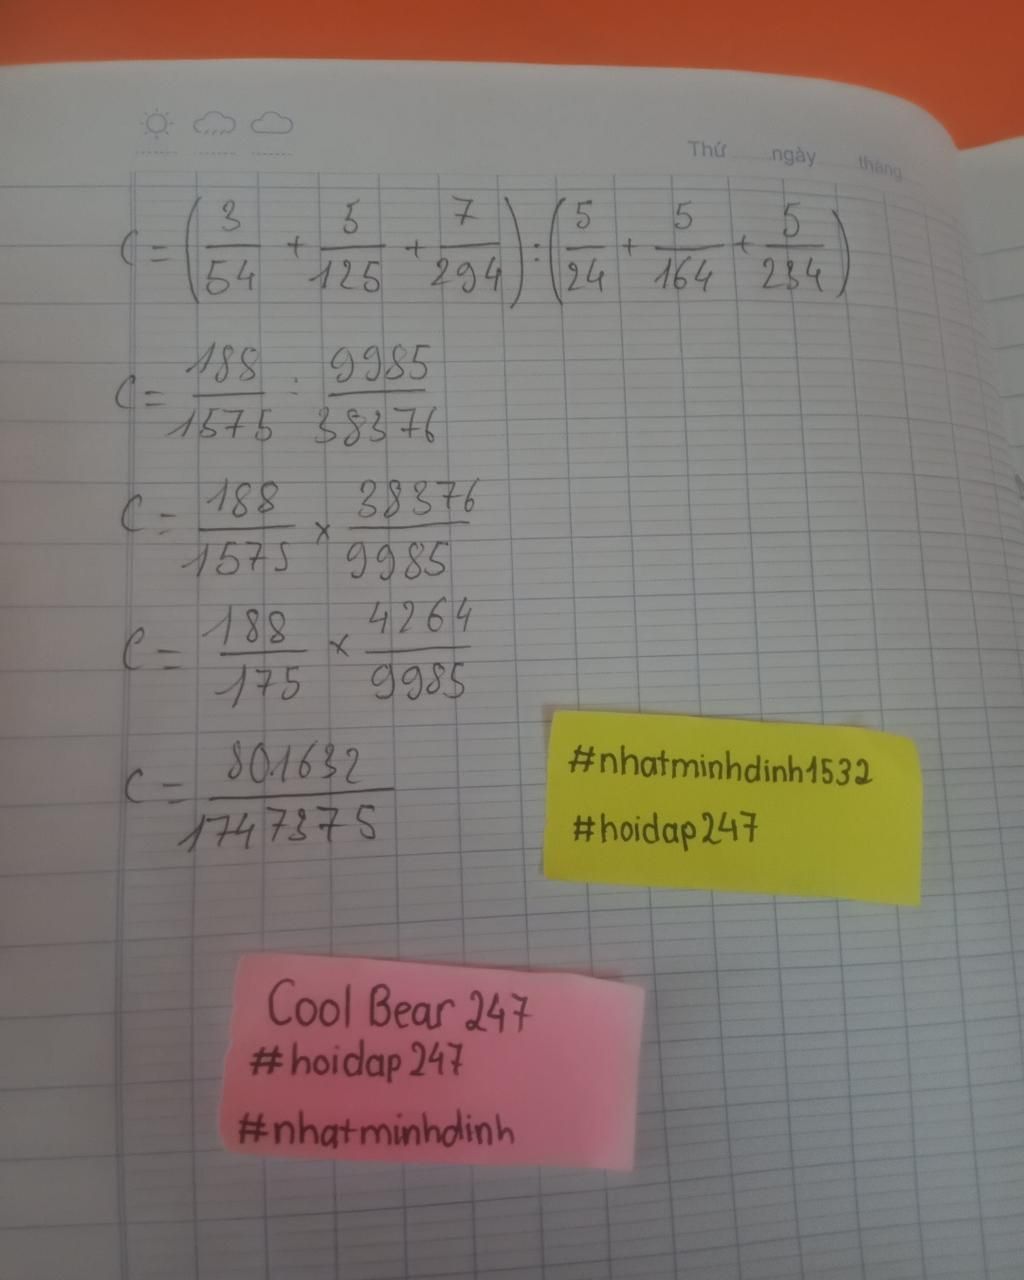 Thứ ngày tháng
C = (3/54 + 5/125 + 7/294) : (5/24 + 5/164 + 5/234)
C = 188/1575 : 9985/38376
C = 188/1575 × 38376/9985
C = 188/175 × 4264/9985
C = 801632/1747375
#nhatminhdinh1532
#hoidap247
Cool Bear 247
#hoidap247
#nhatminhdinh